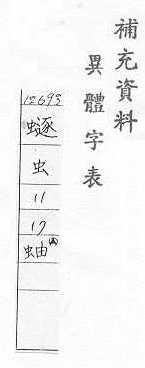 補充資料
異體字表
12693
䗱
虫
11
17
蚰